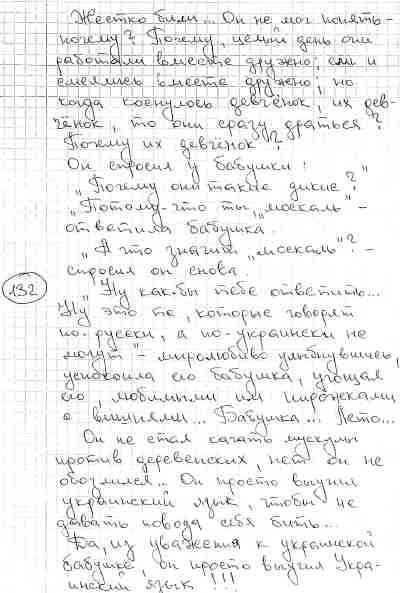 Жестко били... Он не мог понять -
почему? Почему, целый день они
работали вместе дружно; ели и
смеялись вместе дружно; но
когда коснулось девчёнок, их дев-
чёнок, то они сразу драться?
Почему их девчёнок"?
Он спросил у бабушки:
„Почему они такие дикие?"
„Потому-что ты „москаль" -
ответила бабушка.
„А что значит „москаль"? -
спросил он снова.
132
„Ну как-бы тебе ответить...
Ну это те, которые говорят
по-русски, а по-украински не
могут" - миролюбиво улыбнувшись,
успокоила его бабушка, угощая
его, любимыми им пирожками
с вишнями... Бабушка... Лето...
Он не стал качать мускулы
против деревенских, нет он не
обозлился... Он просто выучил
украинский язык, чтобы не
давать повода себя бить...
Да, из уважения к украинской
бабушке, он просто выучил Укра-
инский язык!!!